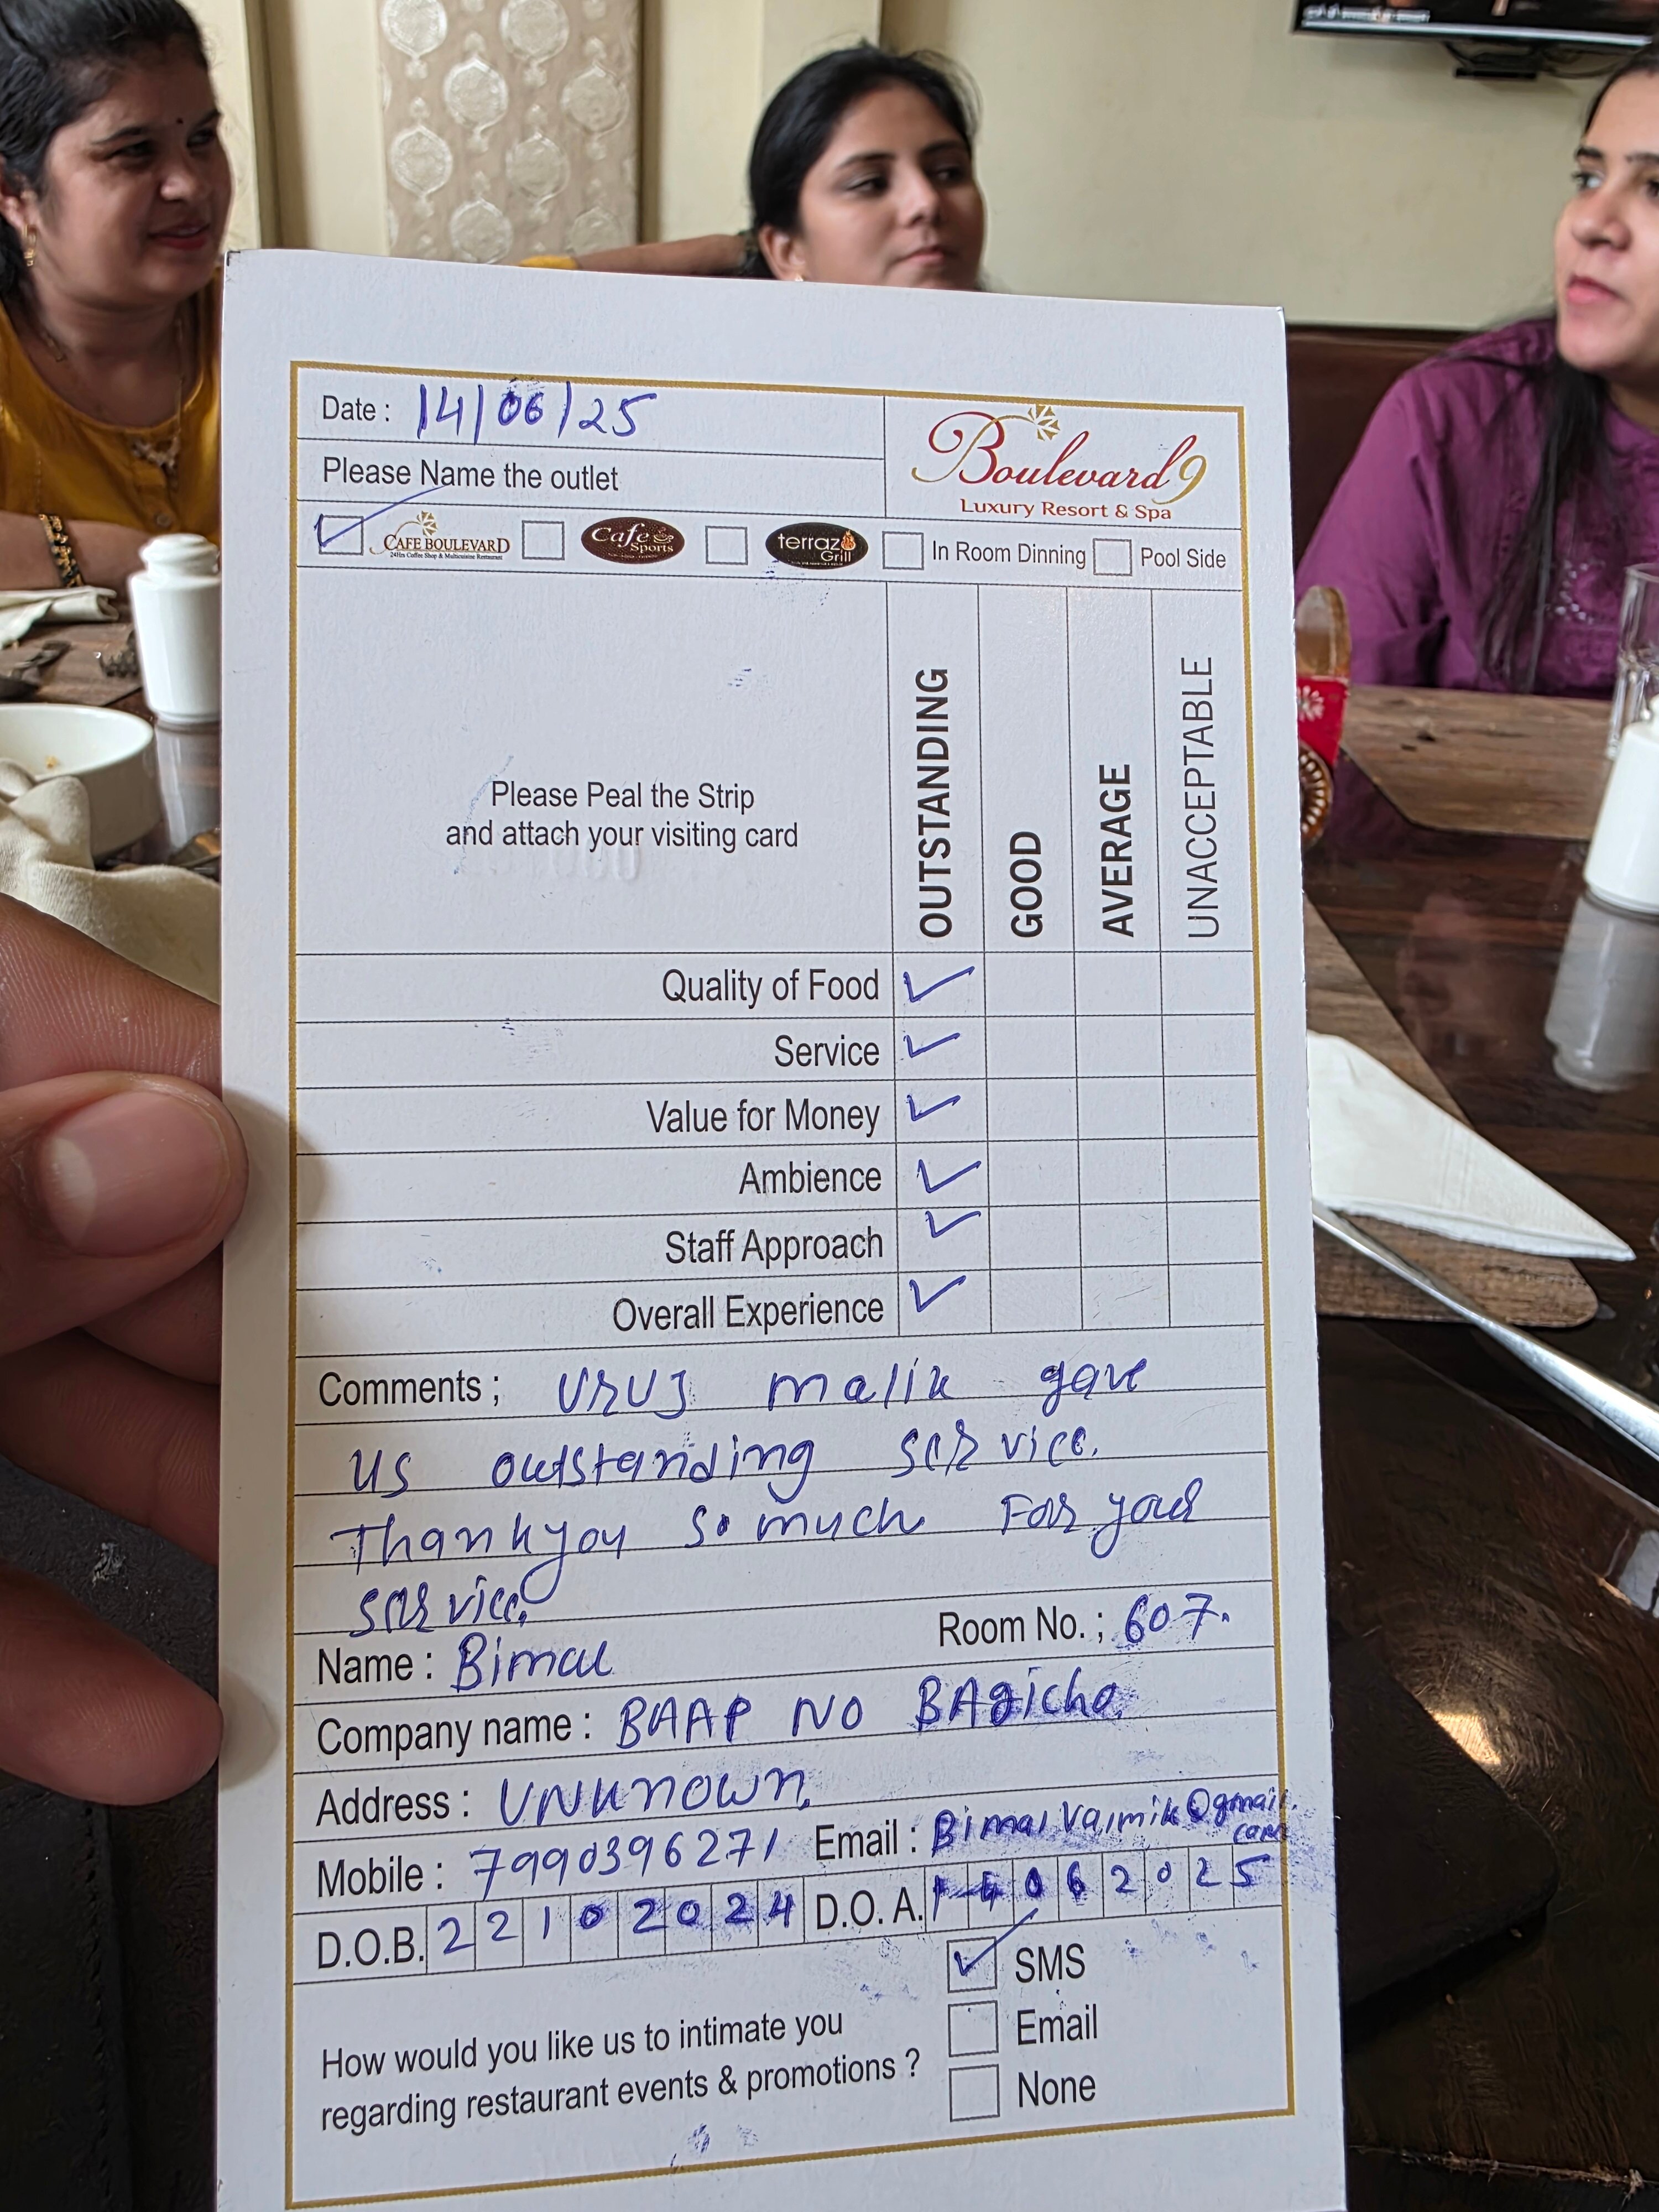 Date : 14/06/25
Boulevard 9
Luxury Resort & Spa
Please Name the outlet
CAFE BOULEVARD
24Hrs Coffee Shop & Multicuisine Restaurant
Cafe Sports
terraza Grill
In Room Dinning
Pool Side
Please Peal the Strip
and attach your visiting card
OUTSTANDING
GOOD
AVERAGE
UNACCEPTABLE
Quality of Food
Service
Value for Money
Ambience
Staff Approach
Overall Experience
Comments ; URUJ malik gave
us outstanding service.
Thank you so much For your
service.
Name : Bimal Room No. ; 607.
Company name : BAAP NO BAgicho.
Address : UNKNOWN.
Mobile : 7990396271 Email : BimalValmik@gmail.
com
D.O.B. 22102024 D.O. A. 062025
SMS
Email
None
How would you like us to intimate you
regarding restaurant events & promotions ?